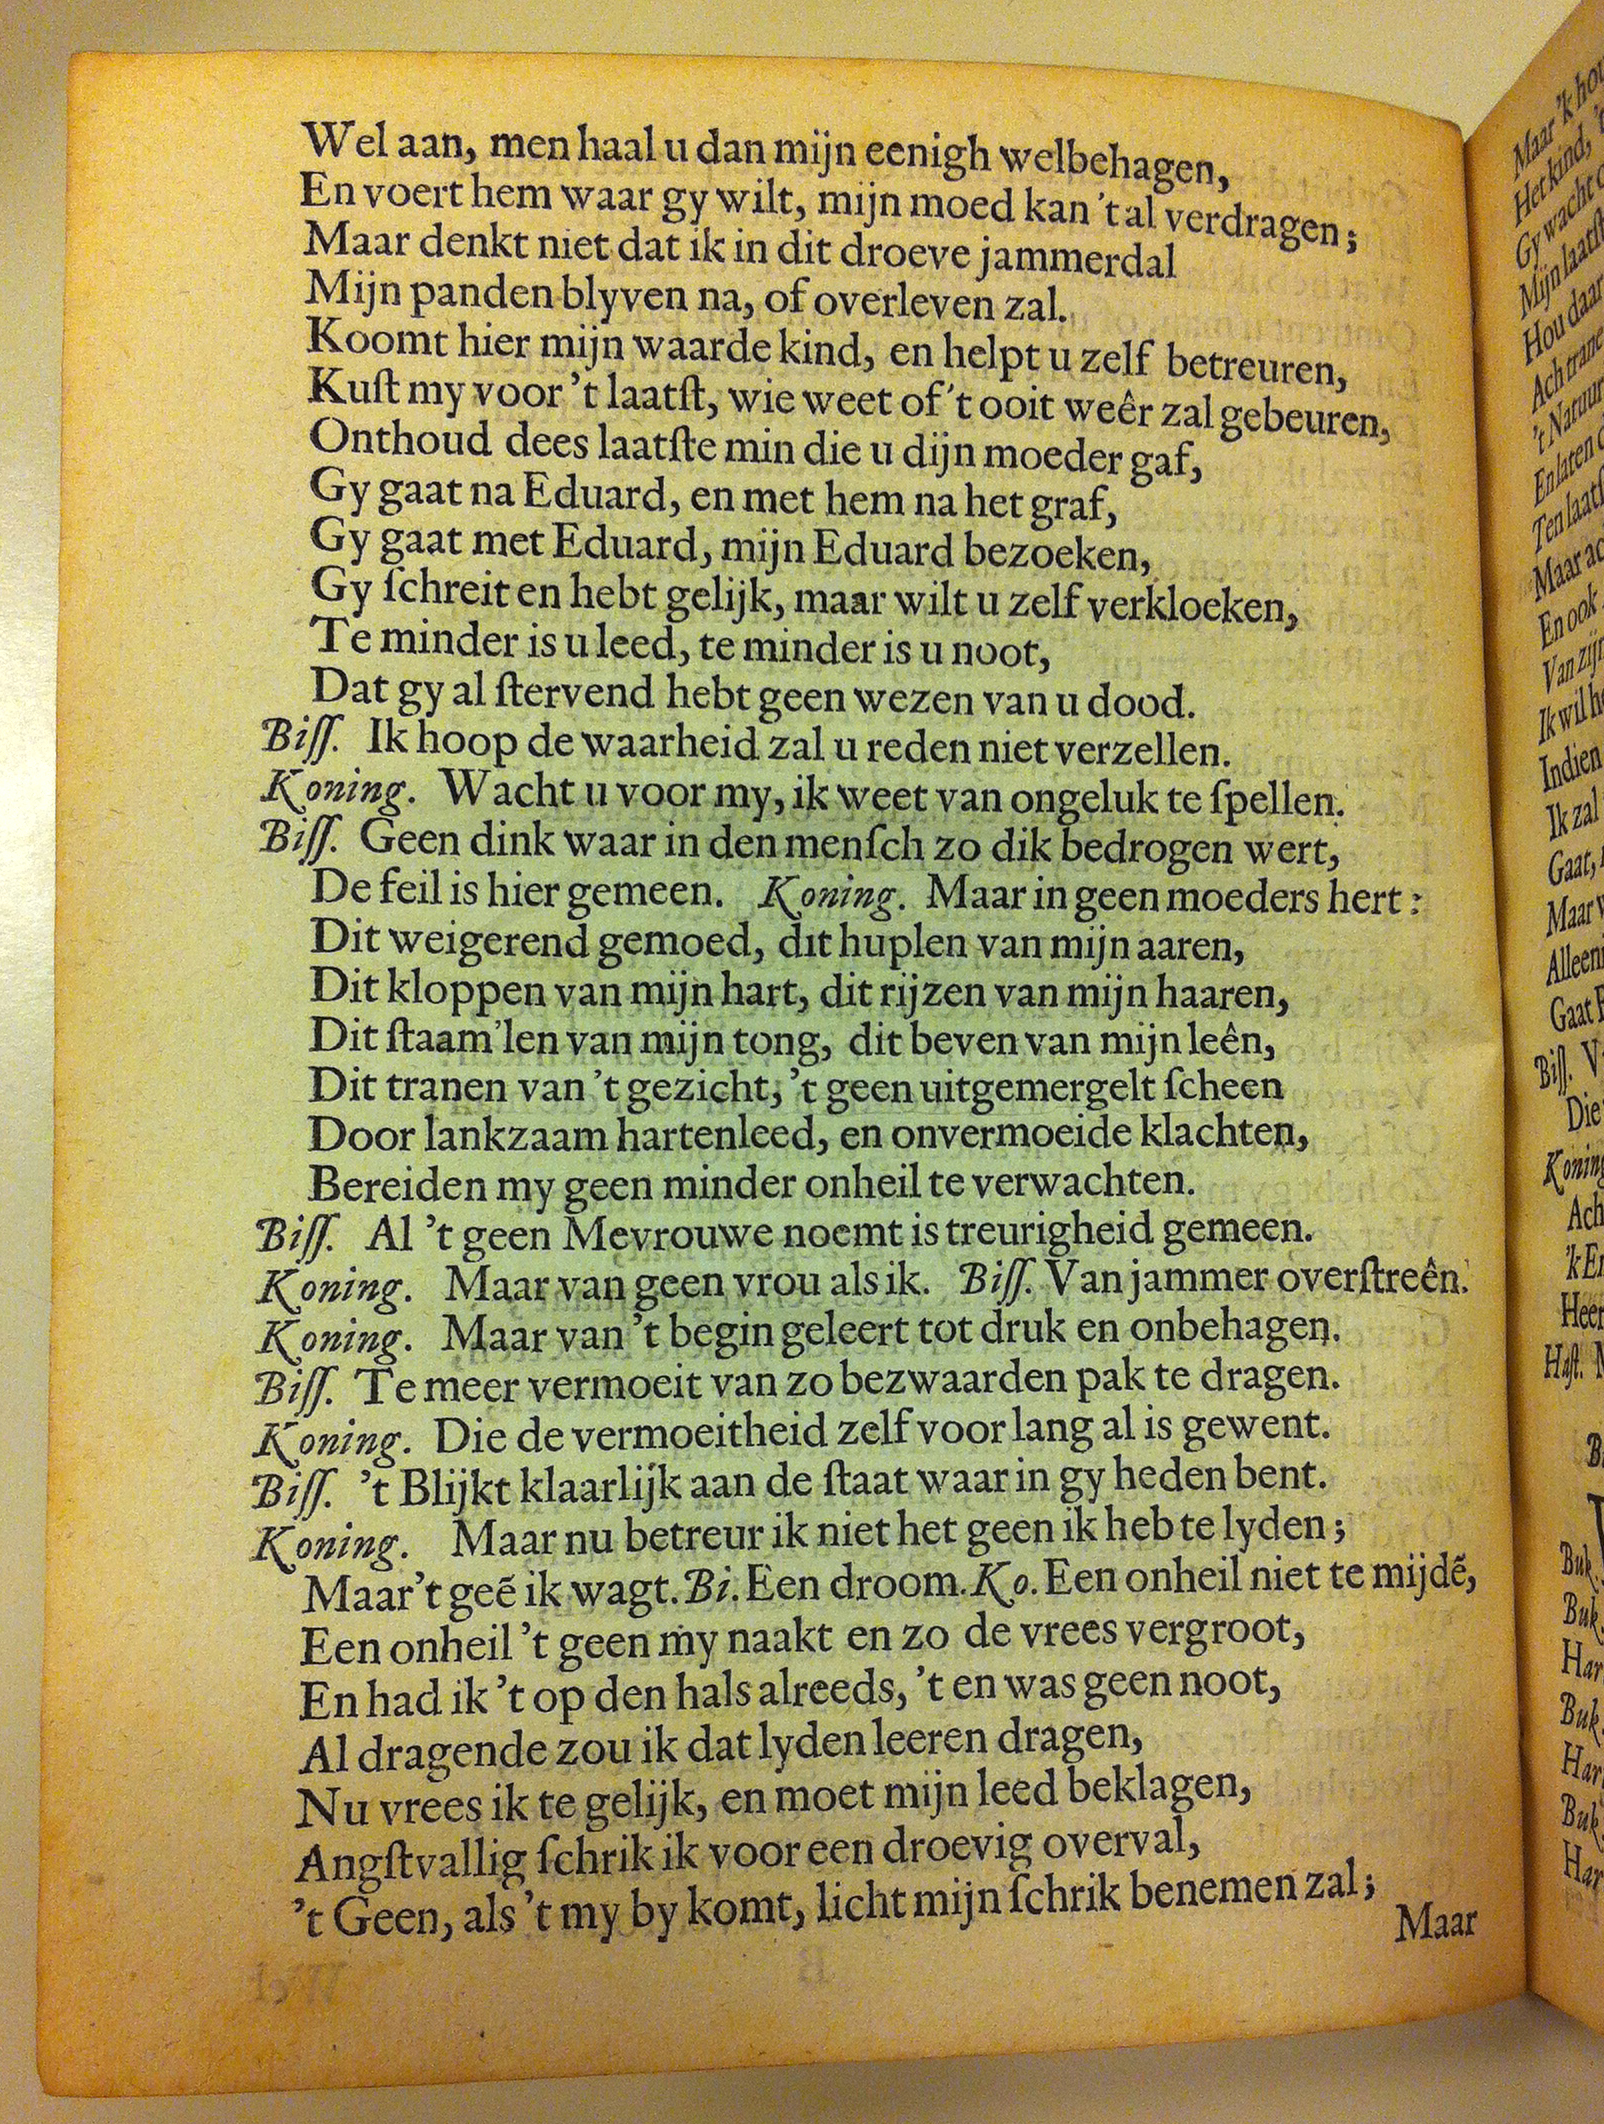 Wel aan, men haal u dan mijn eenigh welbehagen,
En voert hem waar gy wilt, mijn moed kan 't al verdragen;
Maar denkt niet dat ik in dit droeve jammerdal
Mijn panden blyven na, of overleven zal.
Koomt hier mijn waarde kind, en helpt u zelf betreuren,
Kuſt my voor 't laatſt, wie weet of 't ooit weêr zal gebeuren,
Onthoud dees laatſte min die u dijn moeder gaf,
Gy gaat na Eduard, en met hem na het graf,
Gy gaat met Eduard, mijn Eduard bezoeken,
Gy ſchreit en hebt gelijk, maar wilt u zelf verkloeken,
Te minder is u leed, te minder is u noot,
Dat gy al ſtervend hebt geen wezen van u dood.
Biſſ. Ik hoop de waarheid zal u reden niet verzellen.
Koning. Wacht u voor my, ik weet van ongeluk te ſpellen.
Biſſ. Geen dink waar in den menſch zo dik bedrogen wert,
De feil is hier gemeen. Koning. Maar in geen moeders hert:
Dit weigerend gemoed, dit huplen van mijn aaren,
Dit kloppen van mijn hart, dit rijzen van mijn haaren,
Dit ſtaam'len van mijn tong, dit beven van mijn leên,
Dit tranen van 't gezicht, 't geen uitgemergelt ſcheen
Door lankzaam hartenleed, en onvermoeide klachten,
Bereiden my geen minder onheil te verwachten.
Biſſ. Al 't geen Mevrouwe noemt is treurigheid gemeen.
Koning. Maar van geen vrou als ik. Biſſ. Van jammer overſtreên.
Koning. Maar van 't begin geleert tot druk en onbehagen.
Biſſ. Te meer vermoeit van zo bezwaarden pak te dragen.
Koning. Die de vermoeitheid zelf voor lang al is gewent.
Biſſ. 't Blijkt klaarlijk aan de ſtaat waar in gy heden bent.
Koning. Maar nu betreur ik niet het geen ik heb te lyden;
Maar 't geẽ ik wagt. Bi. Een droom. Ko. Een onheil niet te mijdẽ,
Een onheil 't geen my naakt en zo de vrees vergroot,
En had ik 't op den hals alreeds, 't en was geen noot,
Al dragende zou ik dat lyden leeren dragen,
Nu vrees ik te gelijk, en moet mijn leed beklagen,
Angſtvallig ſchrik ik voor een droevig overval,
't Geen, als 't my by komt, licht mijn ſchrik benemen zal;
Maar
Maar 'k
Het kind,
Gy wacht
Mijn laatſt
Hou daar
Ach
't Natuur
En laten
Ten laatſ
Maar
En ook
Van zijn
Ik wil
Indien
Ik zal
Gaat,
Maar
Alleen
Gaat
Biſſ.
Die
Koning
Ach
'k
Heer
Haſt.
Buk.
Buk.
Har
Buk.
Har
Buk.
Har